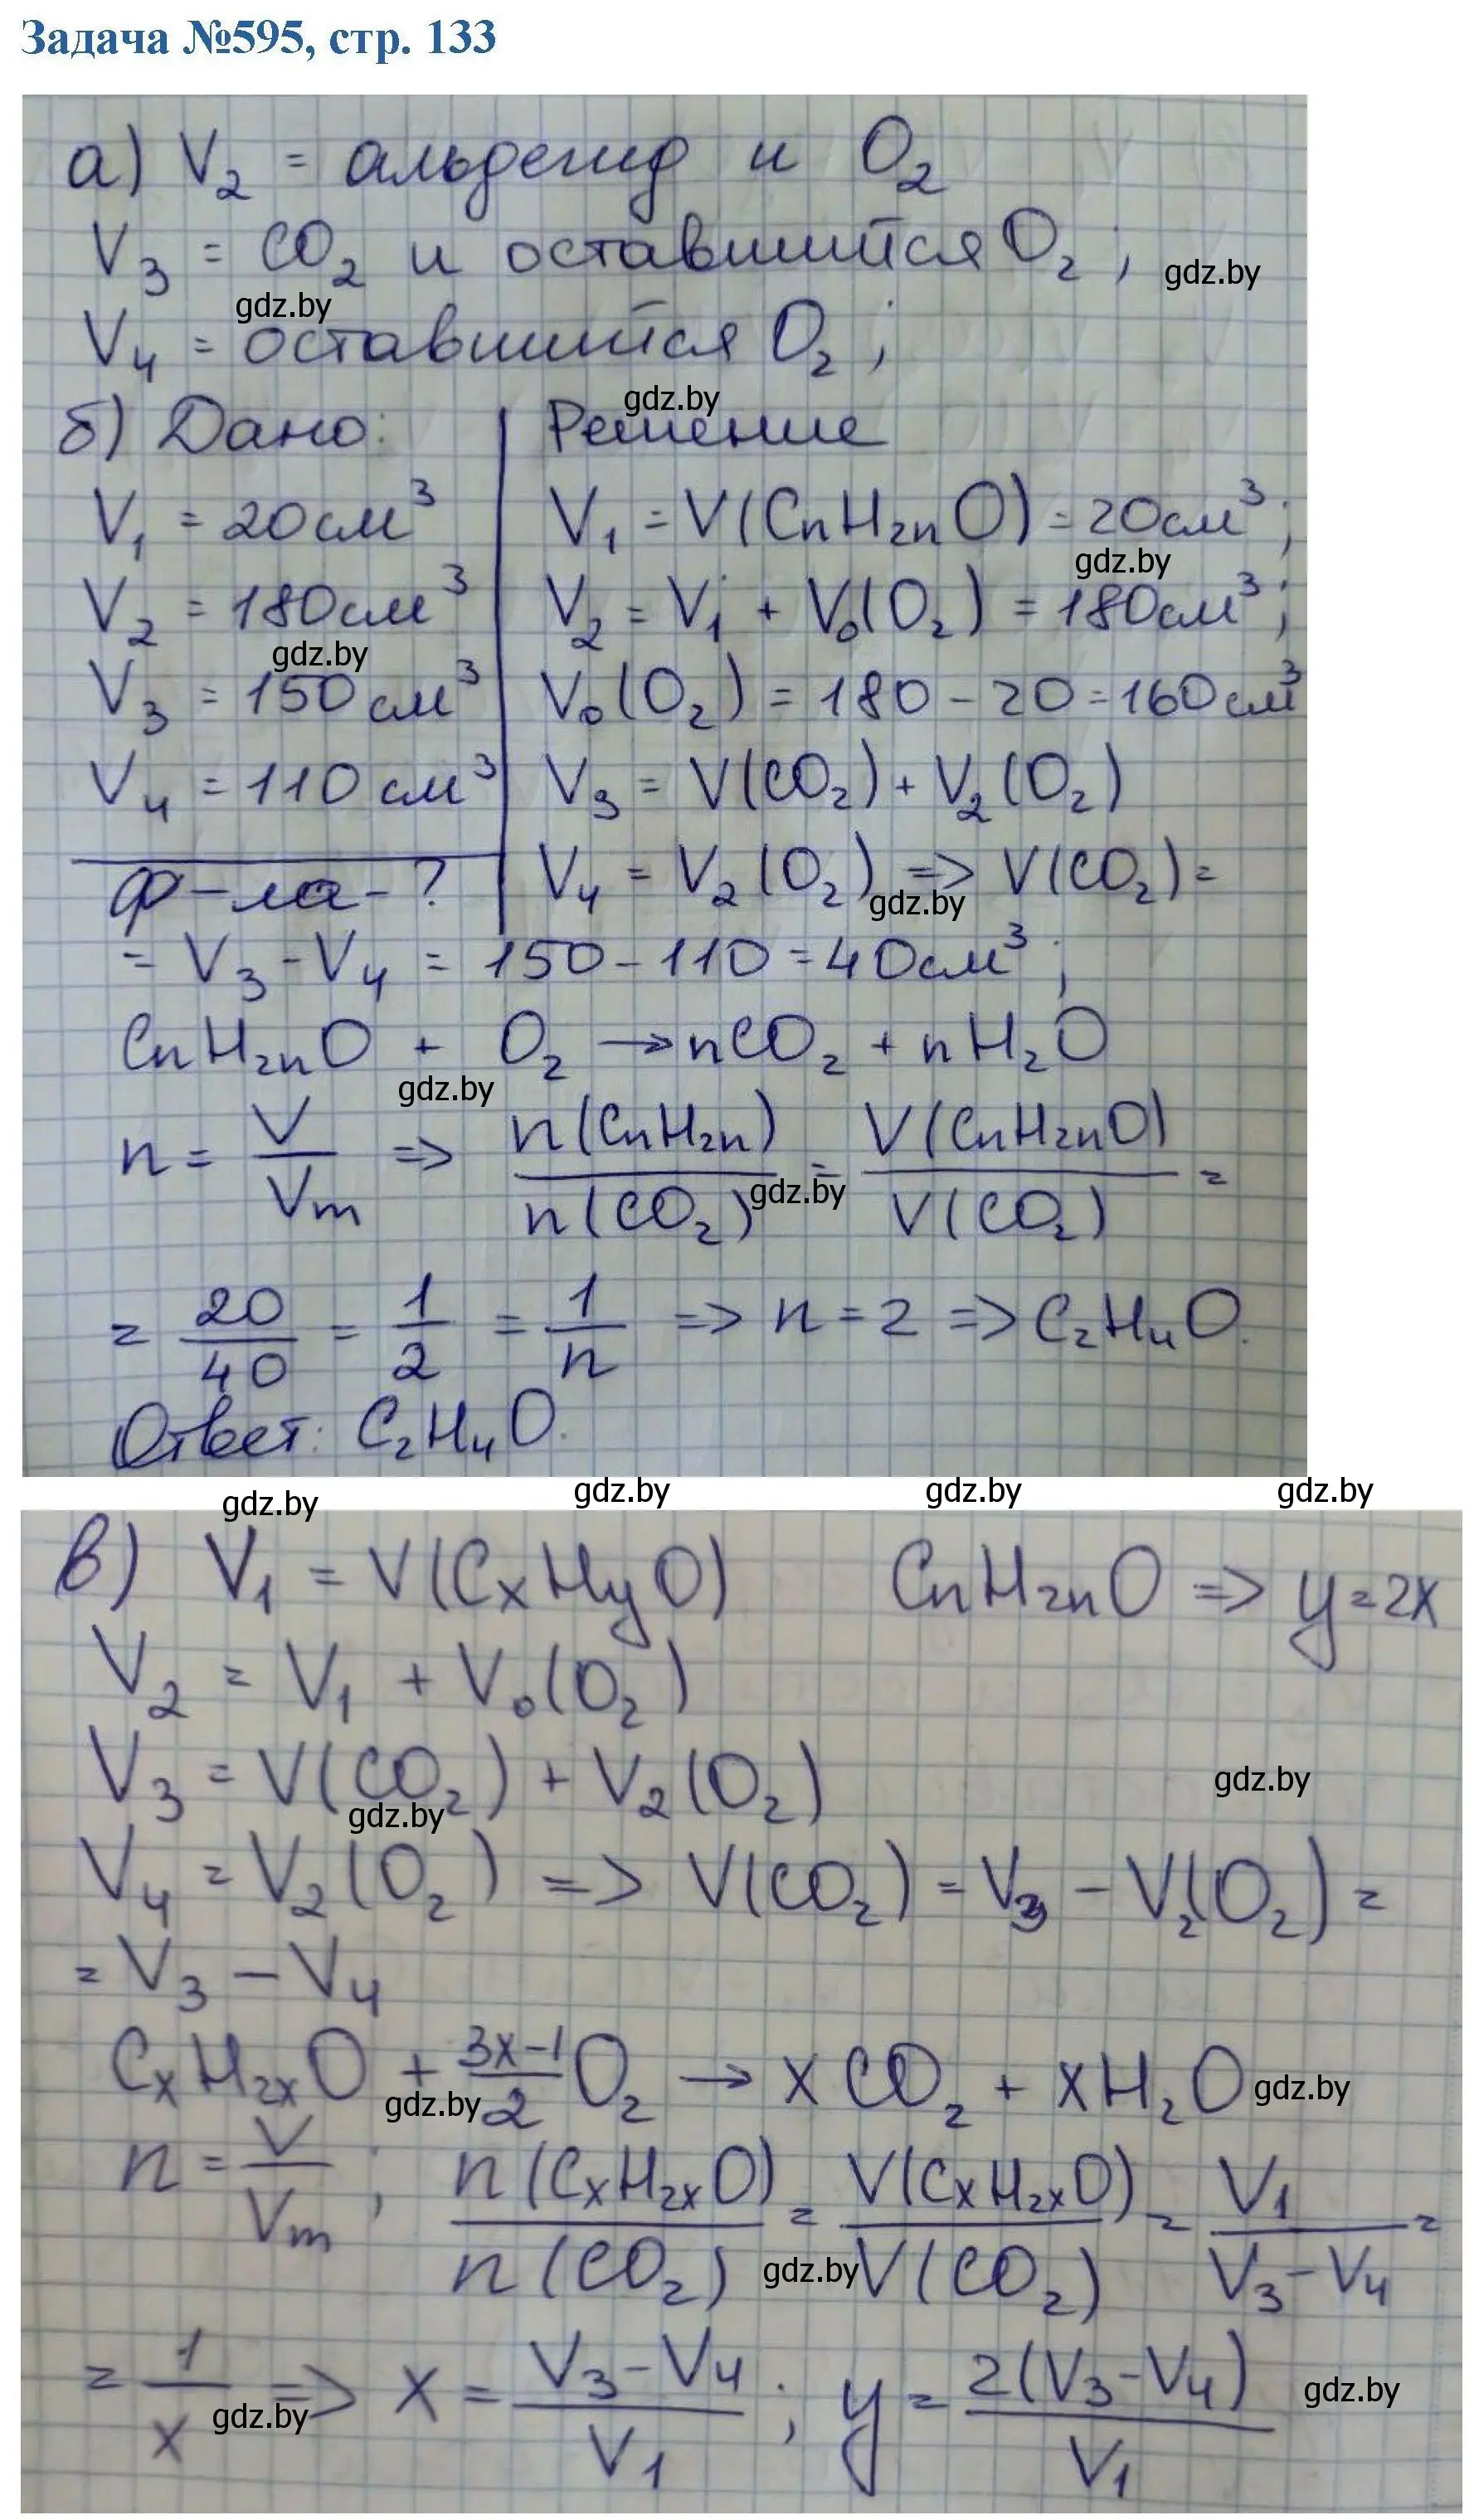 Задача №595, стр. 133
а) V₂ = альдегид и O₂
V₃ = CO₂ и оставшийся O₂;
gdz.by
gdz.by
V₄ = оставшийся O₂;
gdz.by
б) Дано: Решение
V₁ = 20 см³ V₁ = V(CnH₂nO) = 20 см³;
gdz.by
V₂ = 180 см³ V₂ = V₁ + V₀(O₂) = 180 см³;
gdz.by
V₃ = 150 см³ V₀(O₂) = 180 - 20 = 160 см³
V₄ = 110 см³ V₃ = V(CO₂) + V₂(O₂)
ф-ла - ? V₄ = V₂(O₂) => V(CO₂) =
gdz.by
= V₃ - V₄ = 150 - 110 = 40 см³;
CnH₂nO + O₂ → nCO₂ + nH₂O
gdz.by
n = V/Vm => n(CnH₂n)/n(CO₂) = V(CnH₂nO)/V(CO₂) =
gdz.by
= 20/40 = 1/2 = 1/n => n = 2 => C₂H₄O.
Ответ: C₂H₄O.
gdz.by gdz.by gdz.by gdz.by
в) V₁ = V(CxHyO) CnH₂nO => y = 2x
V₂ = V₁ + V₀(O₂)
V₃ = V(CO₂) + V₂(O₂)
gdz.by
gdz.by
V₄ = V₂(O₂) => V(CO₂) = V₃ - V₂(O₂) =
= V₃ - V₄
CxH₂xO + (3x-1)/2 O₂ → xCO₂ + xH₂O
gdz.by gdz.by
n = V/Vm; n(CxH₂xO)/n(CO₂) = V(CxH₂xO)/V(CO₂) = V₁/(V₃-V₄) =
gdz.by
= 1/x => x = (V₃-V₄)/V₁; y = 2(V₃-V₄)/V₁
gdz.by gdz.by